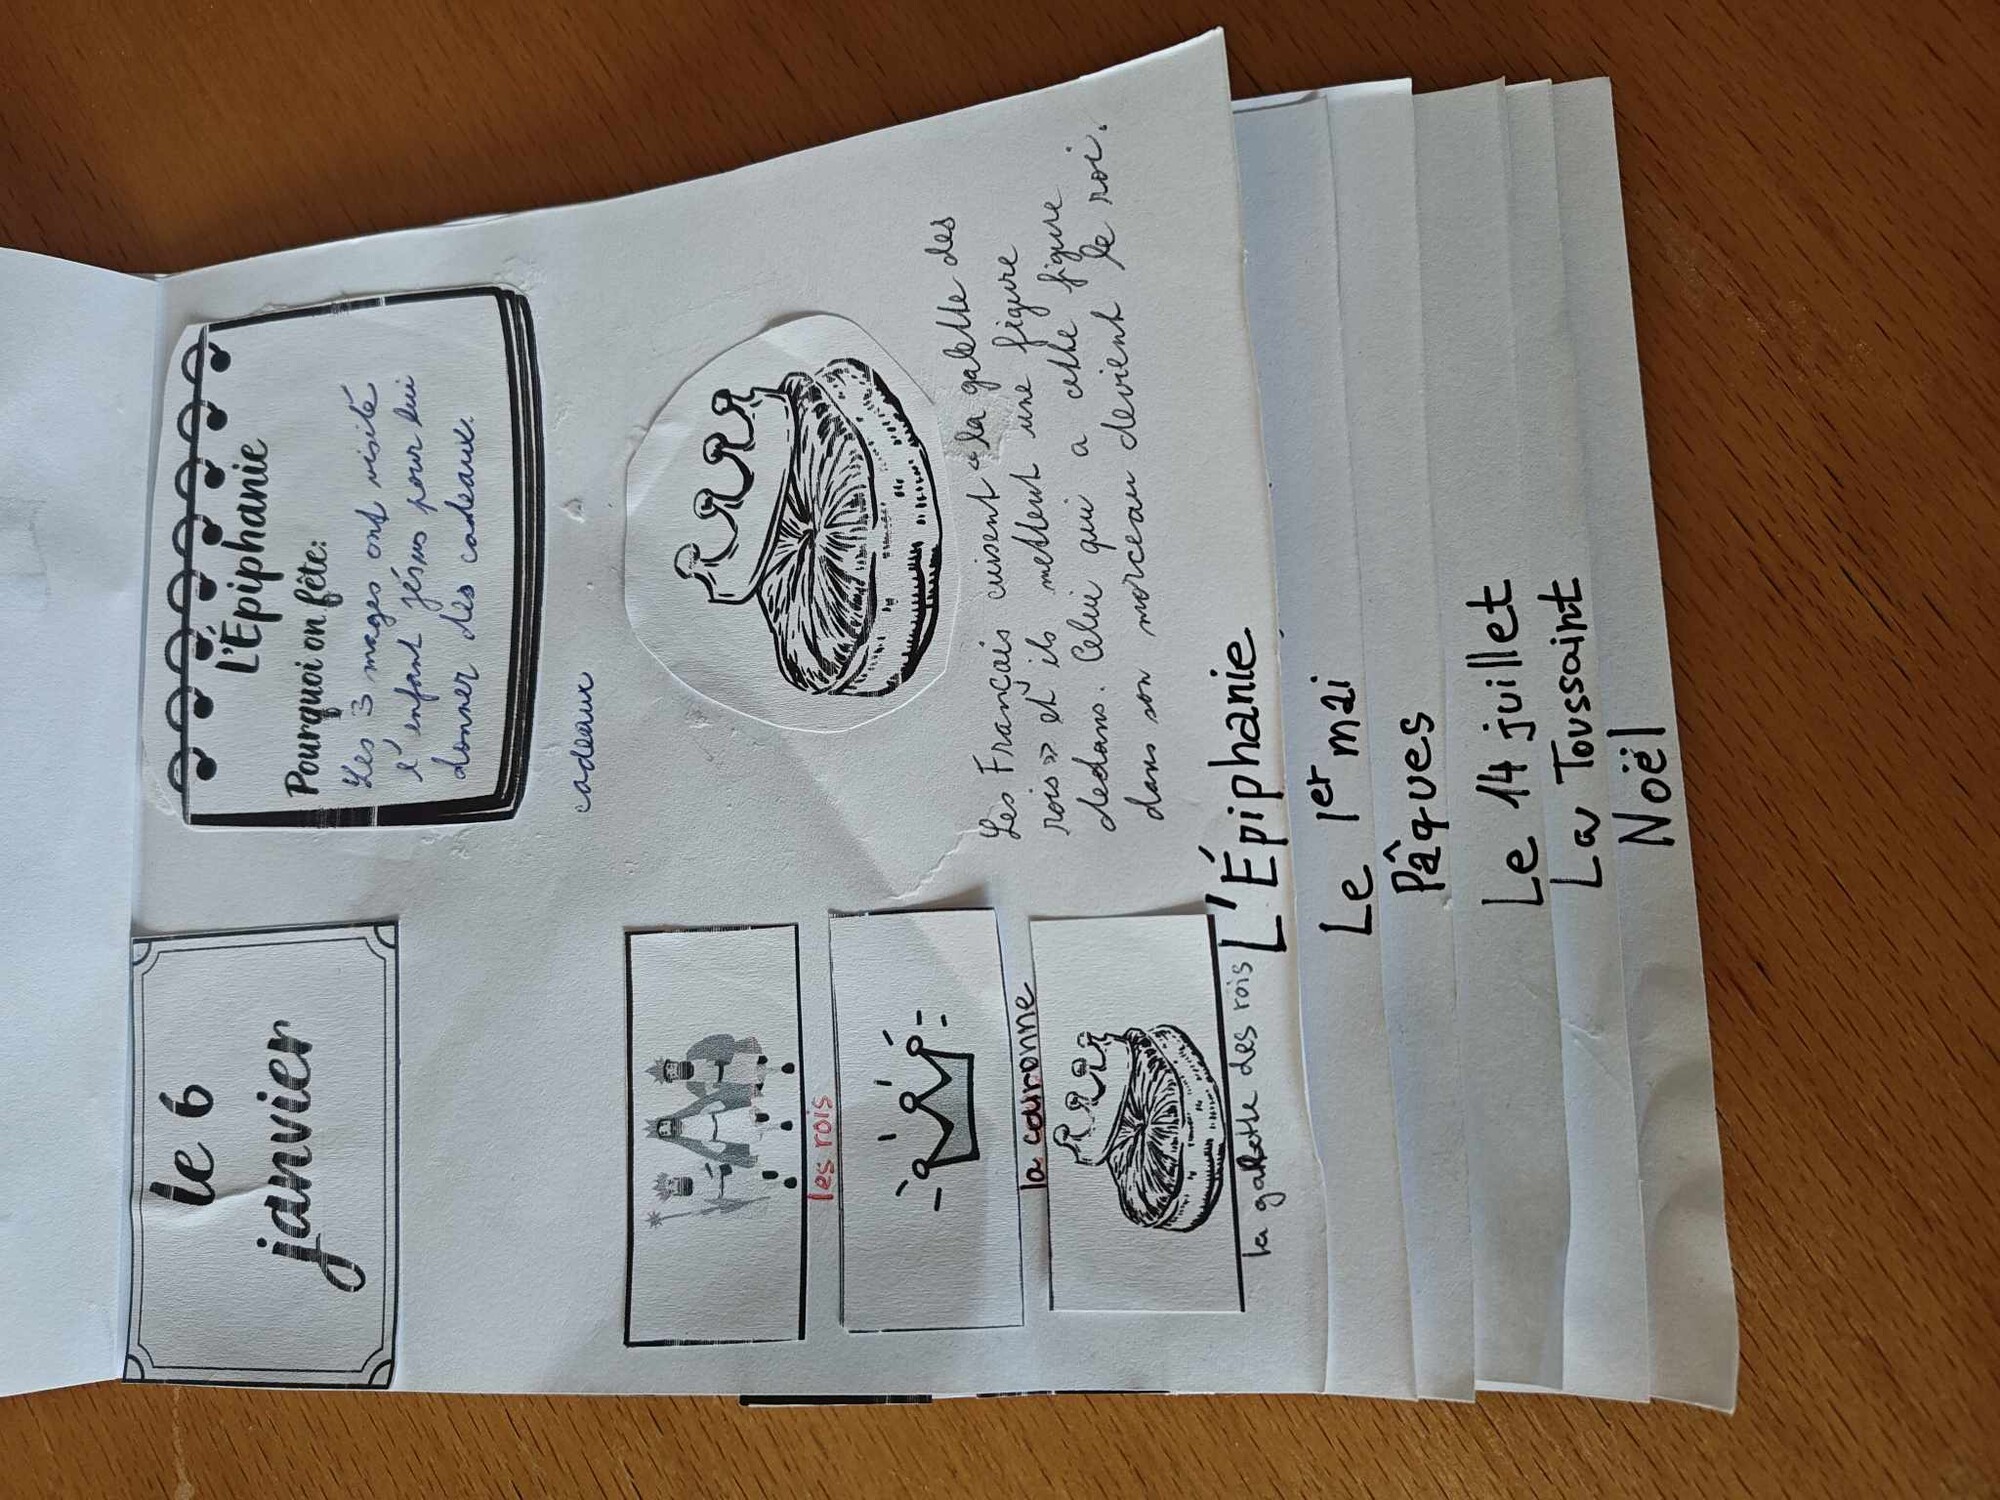 le 6
janvier
L'Épiphanie
Pourquoi on fête:
Les 3 mages ont visité
l'enfant Jésus pour lui
donner des cadeaux.
cadeaux
les rois
la couronne
la galette des rois
Les Francais cuisent « la galette des
rois » et ils mettent une figure
dedans. Celui qui a cette figure
dans son morceau devient le roi.
L'Épiphanie
Le 1er mai
Pâques
Le 14 juillet
La Toussaint
Noël